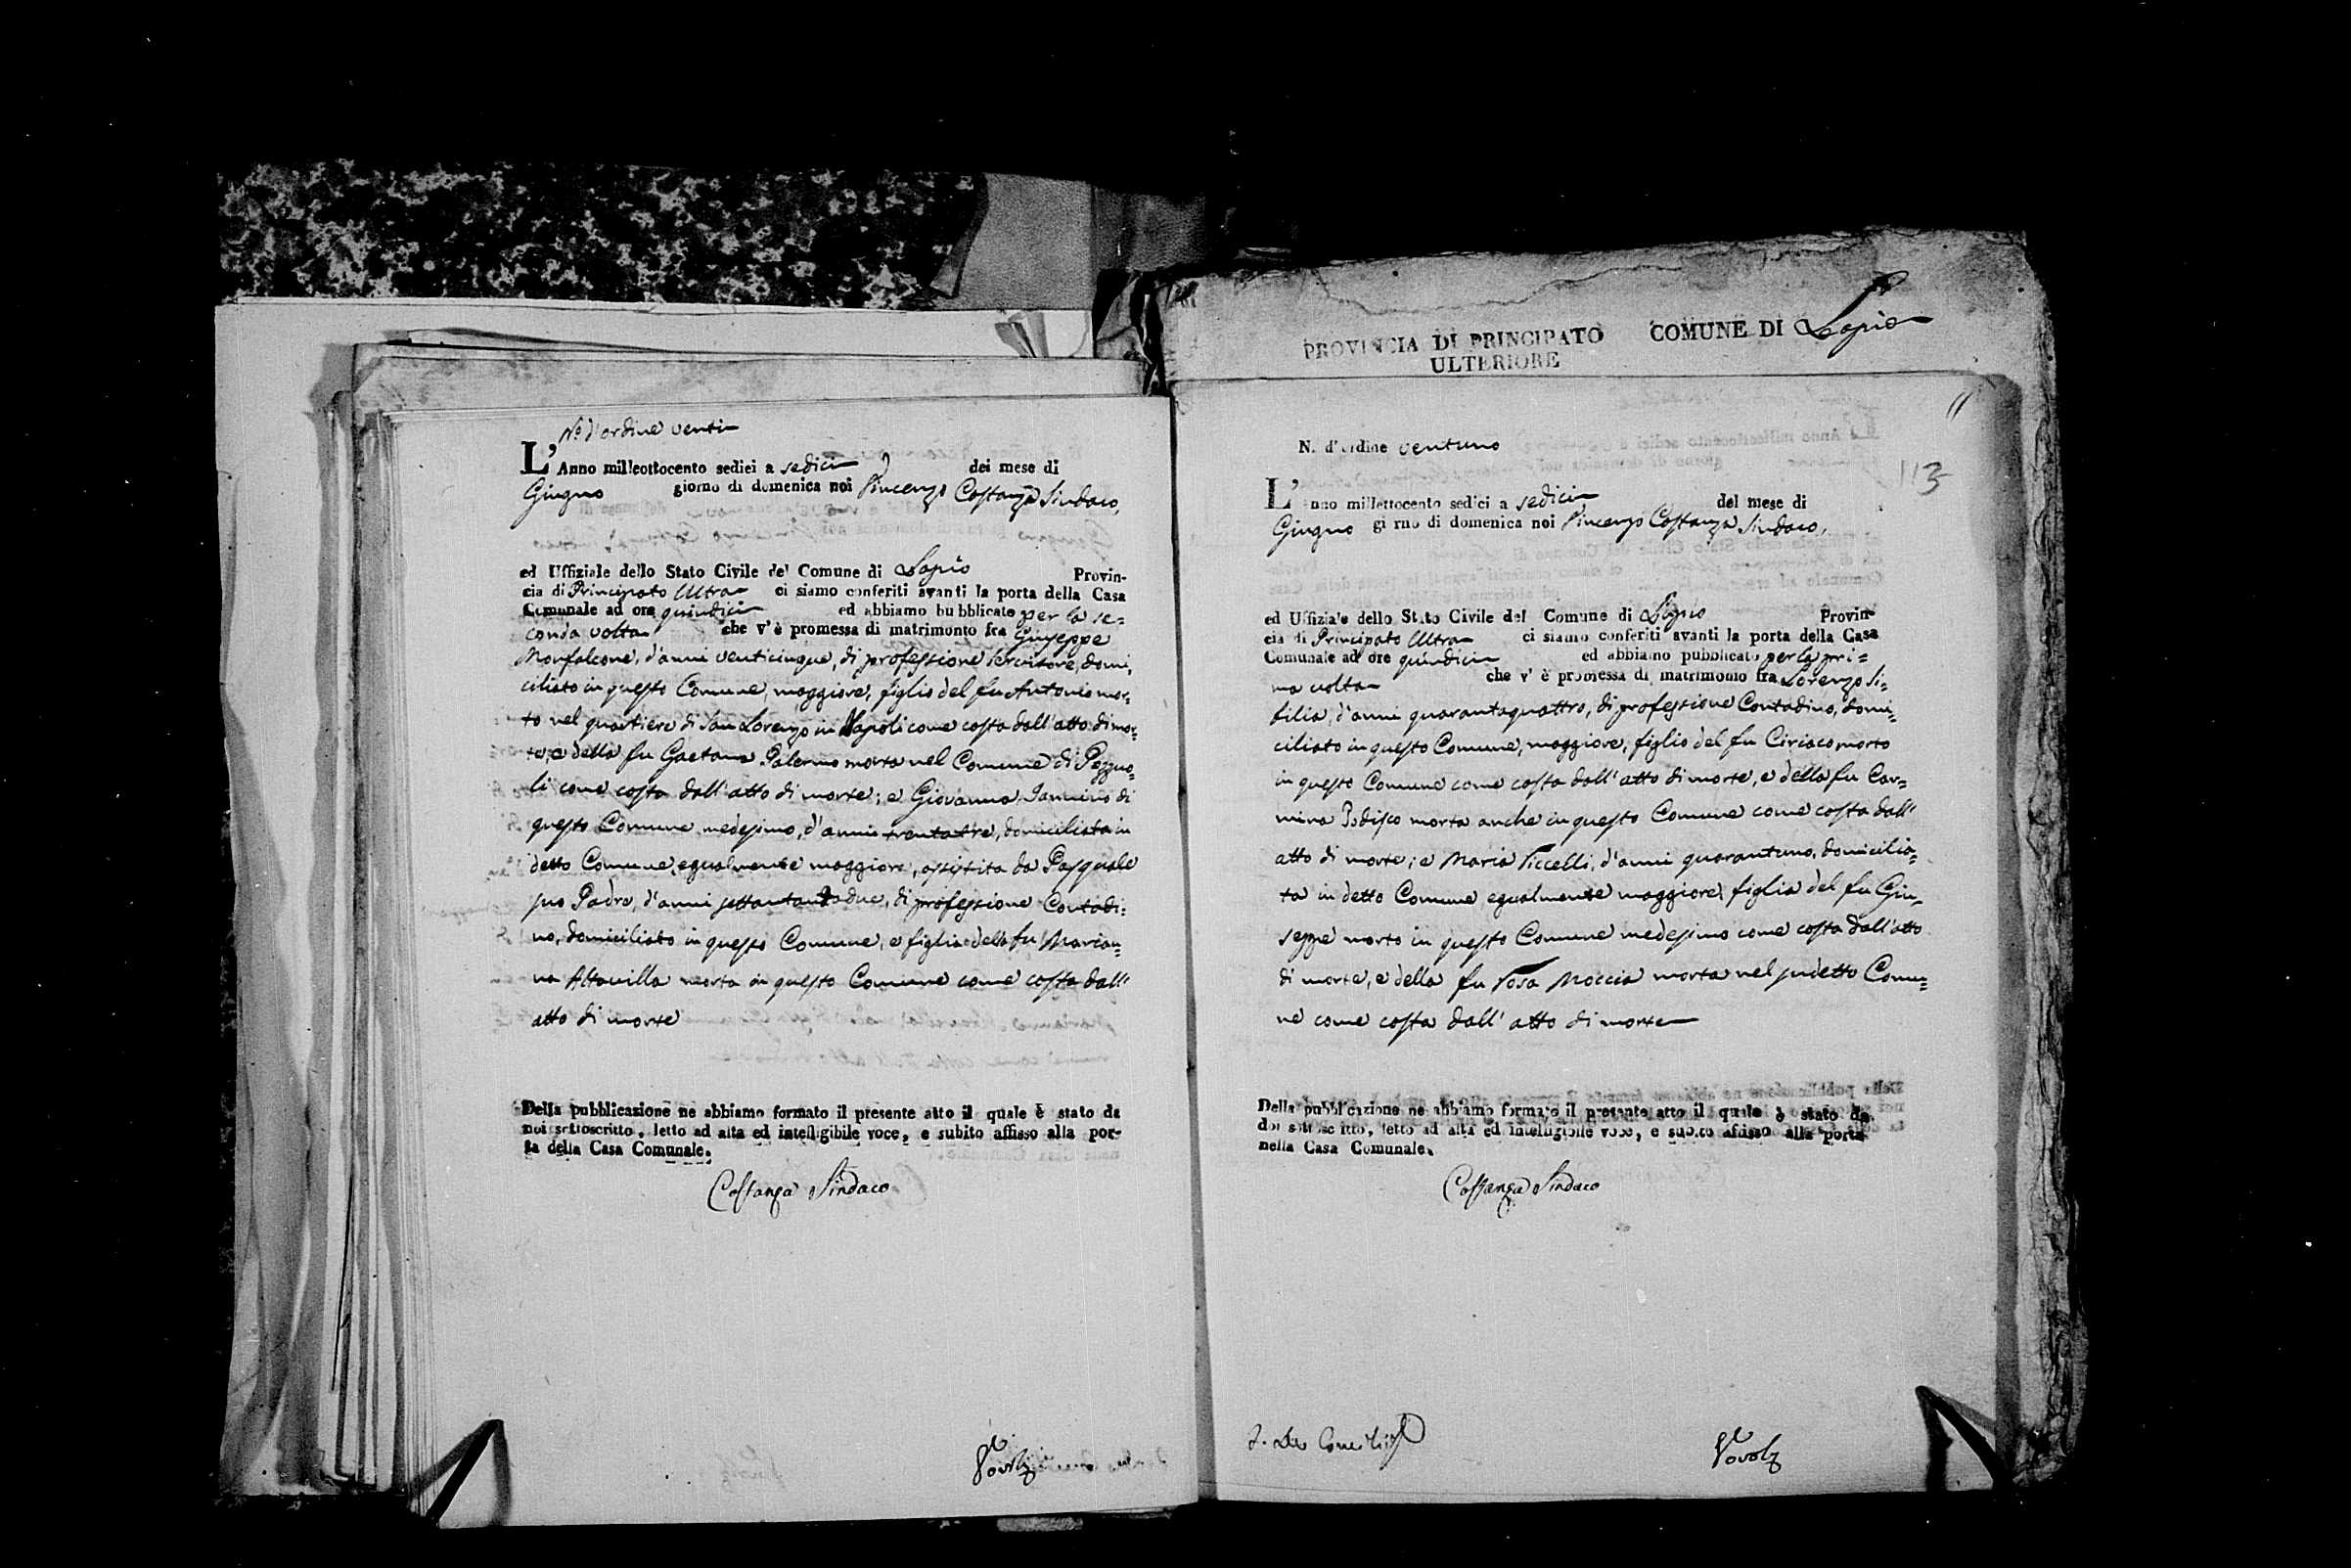 No d'ordine venti
L'Anno milleottocento sedici a sedici del mese di
Giugno giorno di domenica noi Vincenzo Costanza Sindaco,
ed Uffiziale dello Stato Civile del Comune di Lapio Provin-
cia di Principato Ultra ci siamo conferiti avanti la porta della Casa
Comunale ad ore quindici ed abbiamo bubblicato per la se=
conda volta che v'è promessa di matrimonto fra Giuseppe
Monfalcone, d'anni venticinque, di professione servitore, domi,
ciliato in questo Comune, maggiore, figlio del fu Antonio mor-
to nel quartiere di San Lorenzo in Napoli come costa dall'atto di mor-
te, e della fu Gaetana Palermo morta nel Comune di Pozzuo=
li come costa dall'atto di morte; e Giovanna Iannino di
questo Comune medesimo, d'anni trentatre, domiciliata in
detto Comune, egualmente maggiore, assistita da Pasquale
suo Padre, d'anni settantadue, di professione Contadi=
no, domiciliato in questo Comune, e figlia della fu Marian=
na Altavilla morta in questo Comune come costa dall'
atto di morte
Della pubblicazione ne abbiamo formato il presente atto il quale è stato da
noi sottoscritto, letto ad alta ed intelligibile voce, e subito affisso alla por-
ta della Casa Comunale.
Costanza Sindaco
PROVINCIA DI PRINCIPATO COMUNE DI Lapio
ULTERIORE
11
113
N. d'ordine ventuno
L'Anno millettocento sedici a sedici del mese di
Giugno gi rno di domenica noi Vincenzo Costanza Sindaco,
ed Uffiziale dello Stato Civile del Comune di Lapio Provin-
cia di Principato Ultra ci siamo conferiti avanti la porta della Casa
Comunale ad ore quindici ed abbiamo pubblicato per la pri=
ma volta che v' è promessa di matrimonio fra Lorenzo Si=
bilia, d'anni quarantaquattro, di professione Contadino, domi=
ciliato in questo Comune, maggiore, figlio del fu Ciriaco morto
in questo Comune come costa dall'atto di morte, e della fu Car=
mina Iodisco morta anche in questo Comune come costa dall'
atto di morte; e Maria Piccelli, d'anni quarantuno, domicilia=
ta in detto Comune egualmente maggiore, figlia del fu Giu=
seppe morto in questo Comune medesimo come costa dall'atto
di morte, e della fu Rosa Moccia morta nel sudetto Comu=
ne come costa dall'atto di morte
Della pubblicazione ne abbiamo formato il presente atto il quale è stato da
doi sottoscritto, letto ad alta ed intelligibile voce, e subito affisso alla porta
nella Casa Comunale.
Costanza Sindaco